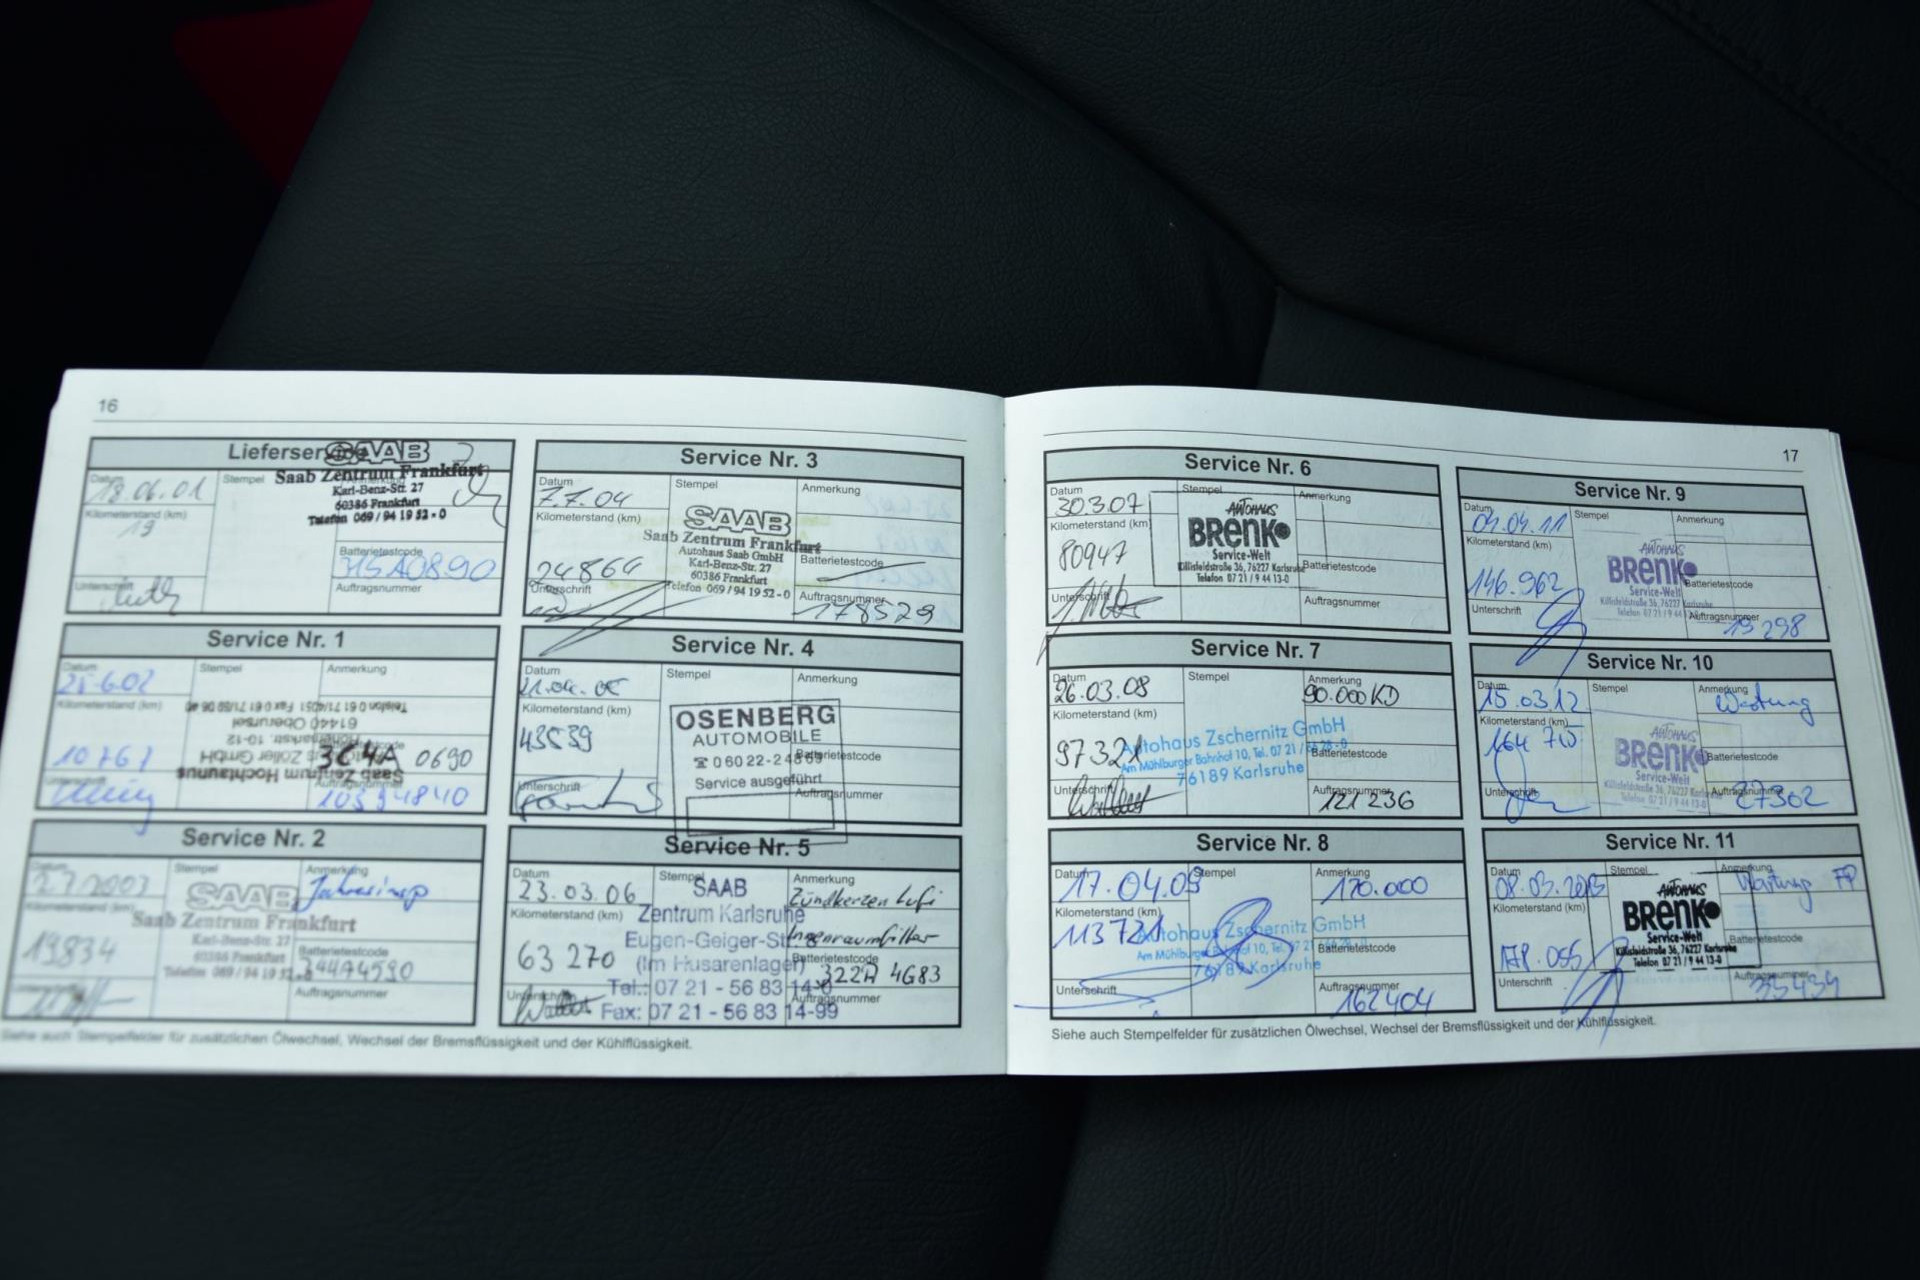 16
SAAB
Saab Zentrum Frankfurt
Karl-Benz-Str. 27
60386 Frankfurt
Telefon 069 / 94 19 52 - 0
Datum
18.06.01
Stempel
Kilometerstand (km)
19
Batterietestcode
Unterschrift
Auftragsnummer
Service Nr. 1
Datum
Stempel
Anmerkung
25.6.02
Kilometerstand (km)
Telefon 0 61 71/4051 Fax 0 61 71/59 06 40
61440 Oberursel
Hohemarkstr. 10-12
Zoller GmbH
Saab Zentrum Hochtaunus
10767
3C4A 0690
Unterschrift
Auftragsnummer
10594840
Service Nr. 2
Datum
Stempel
Anmerkung
2.7.2003
SAAB
Jahresinsp
Kilometerstand (km)
Saab Zentrum Frankfurt
Karl-Benz-Str. 27
60386 Frankfurt
Telefon 069 / 94 19 52 - 0
19834
Batterietestcode
Unterschrift
Auftragsnummer
Service Nr. 3
Datum
Stempel
Anmerkung
7.7.04
Kilometerstand (km)
SAAB
Saab Zentrum Frankfurt
Autohaus Saab GmbH
Karl-Benz-Str. 27
60386 Frankfurt
Telefon 069 / 94 19 52 - 0
24864
Batterietestcode
Unterschrift
Auftragsnummer
178529
Service Nr. 4
Datum
Stempel
Anmerkung
Kilometerstand (km)
43539
OSENBERG
AUTOMOBILE
☎ 0 60 22-24
Service ausgeführt
Batterietestcode
Unterschrift
Auftragsnummer
Service Nr. 5
Datum
Stempel
Anmerkung
23.03.06
SAAB
Zentrum Karlsruhe
Eugen-Geiger-Str. 8
(Im Husarenlager)
Tel.: 07 21 - 56 83 14-0
Fax: 07 21 - 56 83 14-99
Zündkerzen Lufi
Innenraumfilter
Kilometerstand (km)
63 270
Batterietestcode
322A 4G83
Unterschrift
Auftragsnummer
Siehe auch Stempelfelder für zusätzlichen Ölwechsel, Wechsel der Bremsflüssigkeit und der Kühlflüssigkeit.
17
Service Nr. 6
Datum
Stempel
Anmerkung
30.3.07
Kilometerstand (km)
80947
AUTOHAUS
BRENK
Service-Welt
Killisfeldstraße 36, 76227 Karlsruhe
Telefon 07 21 / 9 44 13-0
Batterietestcode
Unterschrift
Auftragsnummer
Service Nr. 7
Datum
Stempel
Anmerkung
26.03.08
90.000 KD
Kilometerstand (km)
Autohaus Zschernitz GmbH
Am Mühlburger Bahnhof 10, Tel. 07 21 /
76189 Karlsruhe
Batterietestcode
Unterschrift
Auftragsnummer
121236
Service Nr. 8
Datum
Stempel
Anmerkung
17.04.09
Kilometerstand (km)
113721
Autohaus Zschernitz GmbH
76189 Karlsruhe
Batterietestcode
Unterschrift
Auftragsnummer
162404
Service Nr. 9
Datum
Stempel
Anmerkung
Kilometerstand (km)
146.962
AUTOHAUS
BRENK
Service-Welt
Killisfeldstraße 36, 76227 Karlsruhe
Telefon 07 21 / 9 44
Batterietestcode
Unterschrift
Auftragsnummer
19298
Service Nr. 10
Datum
Stempel
Anmerkung
15.03.12
Wartung
Kilometerstand (km)
AUTOHAUS
BRENK
Service-Welt
Killisfeldstraße 36, 76227 Karlsruhe
Telefon 07 21 / 9 44 13-0
Batterietestcode
Unterschrift
Auftragsnummer
27302
Service Nr. 11
Datum
Stempel
Anmerkung
08.03.2013
Wartung
Kilometerstand (km)
AUTOHAUS
BRENK
Service-Welt
Killisfeldstraße 36, 76227 Karlsruhe
Telefon 07 21 / 9 44 13-0
Batterietestcode
Unterschrift
Auftragsnummer
35439
Siehe auch Stempelfelder für zusätzlichen Ölwechsel, Wechsel der Bremsflüssigkeit und der Kühlflüssigkeit.